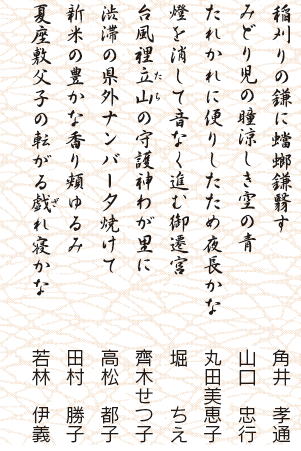 稲刈りの鎌に蟷螂鎌翳す　角井　孝通
みどり児の瞳涼しき空の青　山口　忠行
たれかれに便りしたため夜長かな　丸田美恵子
燈を消して音なく進む御遷宮　堀　ちえ
台風裡立山の守護神わが里に　齊木せつ子
たち
渋滞の県外ナンバー夕焼けて　高松　都子
新米の豊かな香り頬ゆるみ　田村　勝子
夏座敷父子の転がる戯れ寝かな　若林　伊義
ざ